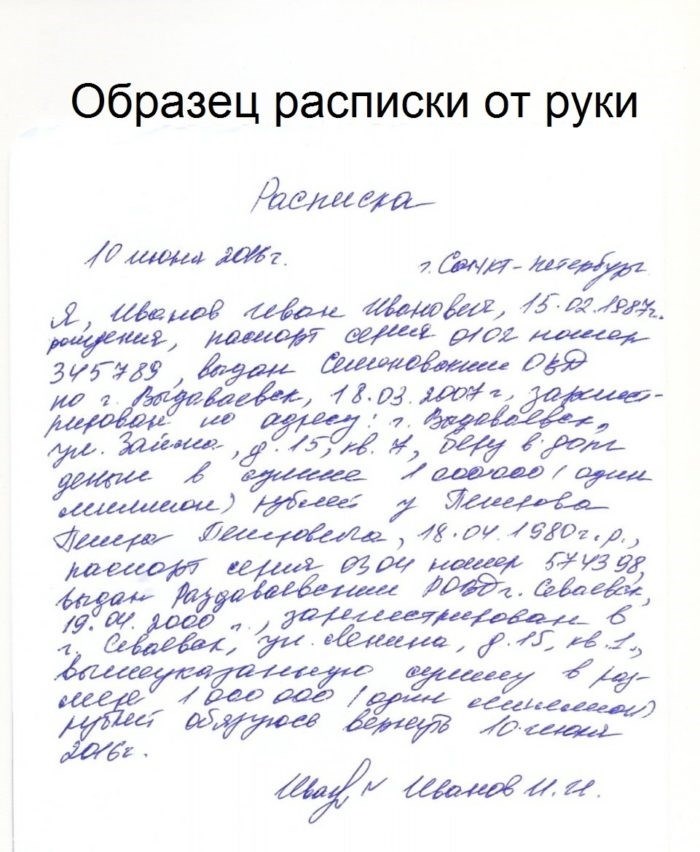 Образец расписки от руки
Расписка
10 июня 2016г. г. Санкт-Петербург
Я, Иванов Иван Иванович, 15.02.1987г.
рождения, паспорт серия 0102 номер
345789, выдан ОВД
по г. Выдаваевск, 18.03.2007г, зарегист-
рирован по адресу: г. Выдаваевск,
ул. Займа, д. 15, кв. 7, беру в долг
деньги в сумме 1 000000 (один
миллион) рублей у Петрова
Петра Петровича, 18.04.1980г.р.,
паспорт серия 0304 номер 574398,
выдан Раздаваевским РОВД г. Севаевск,
19.04.2000 г., зарегистрирован в
г. Севаевск, ул. Ленина, д. 15, кв 1.,
вышеуказанную сумму в раз-
мере 1 000 000 (один миллион)
рублей обязуюсь вернуть 10 июня
2016г.
Иванов И. И.